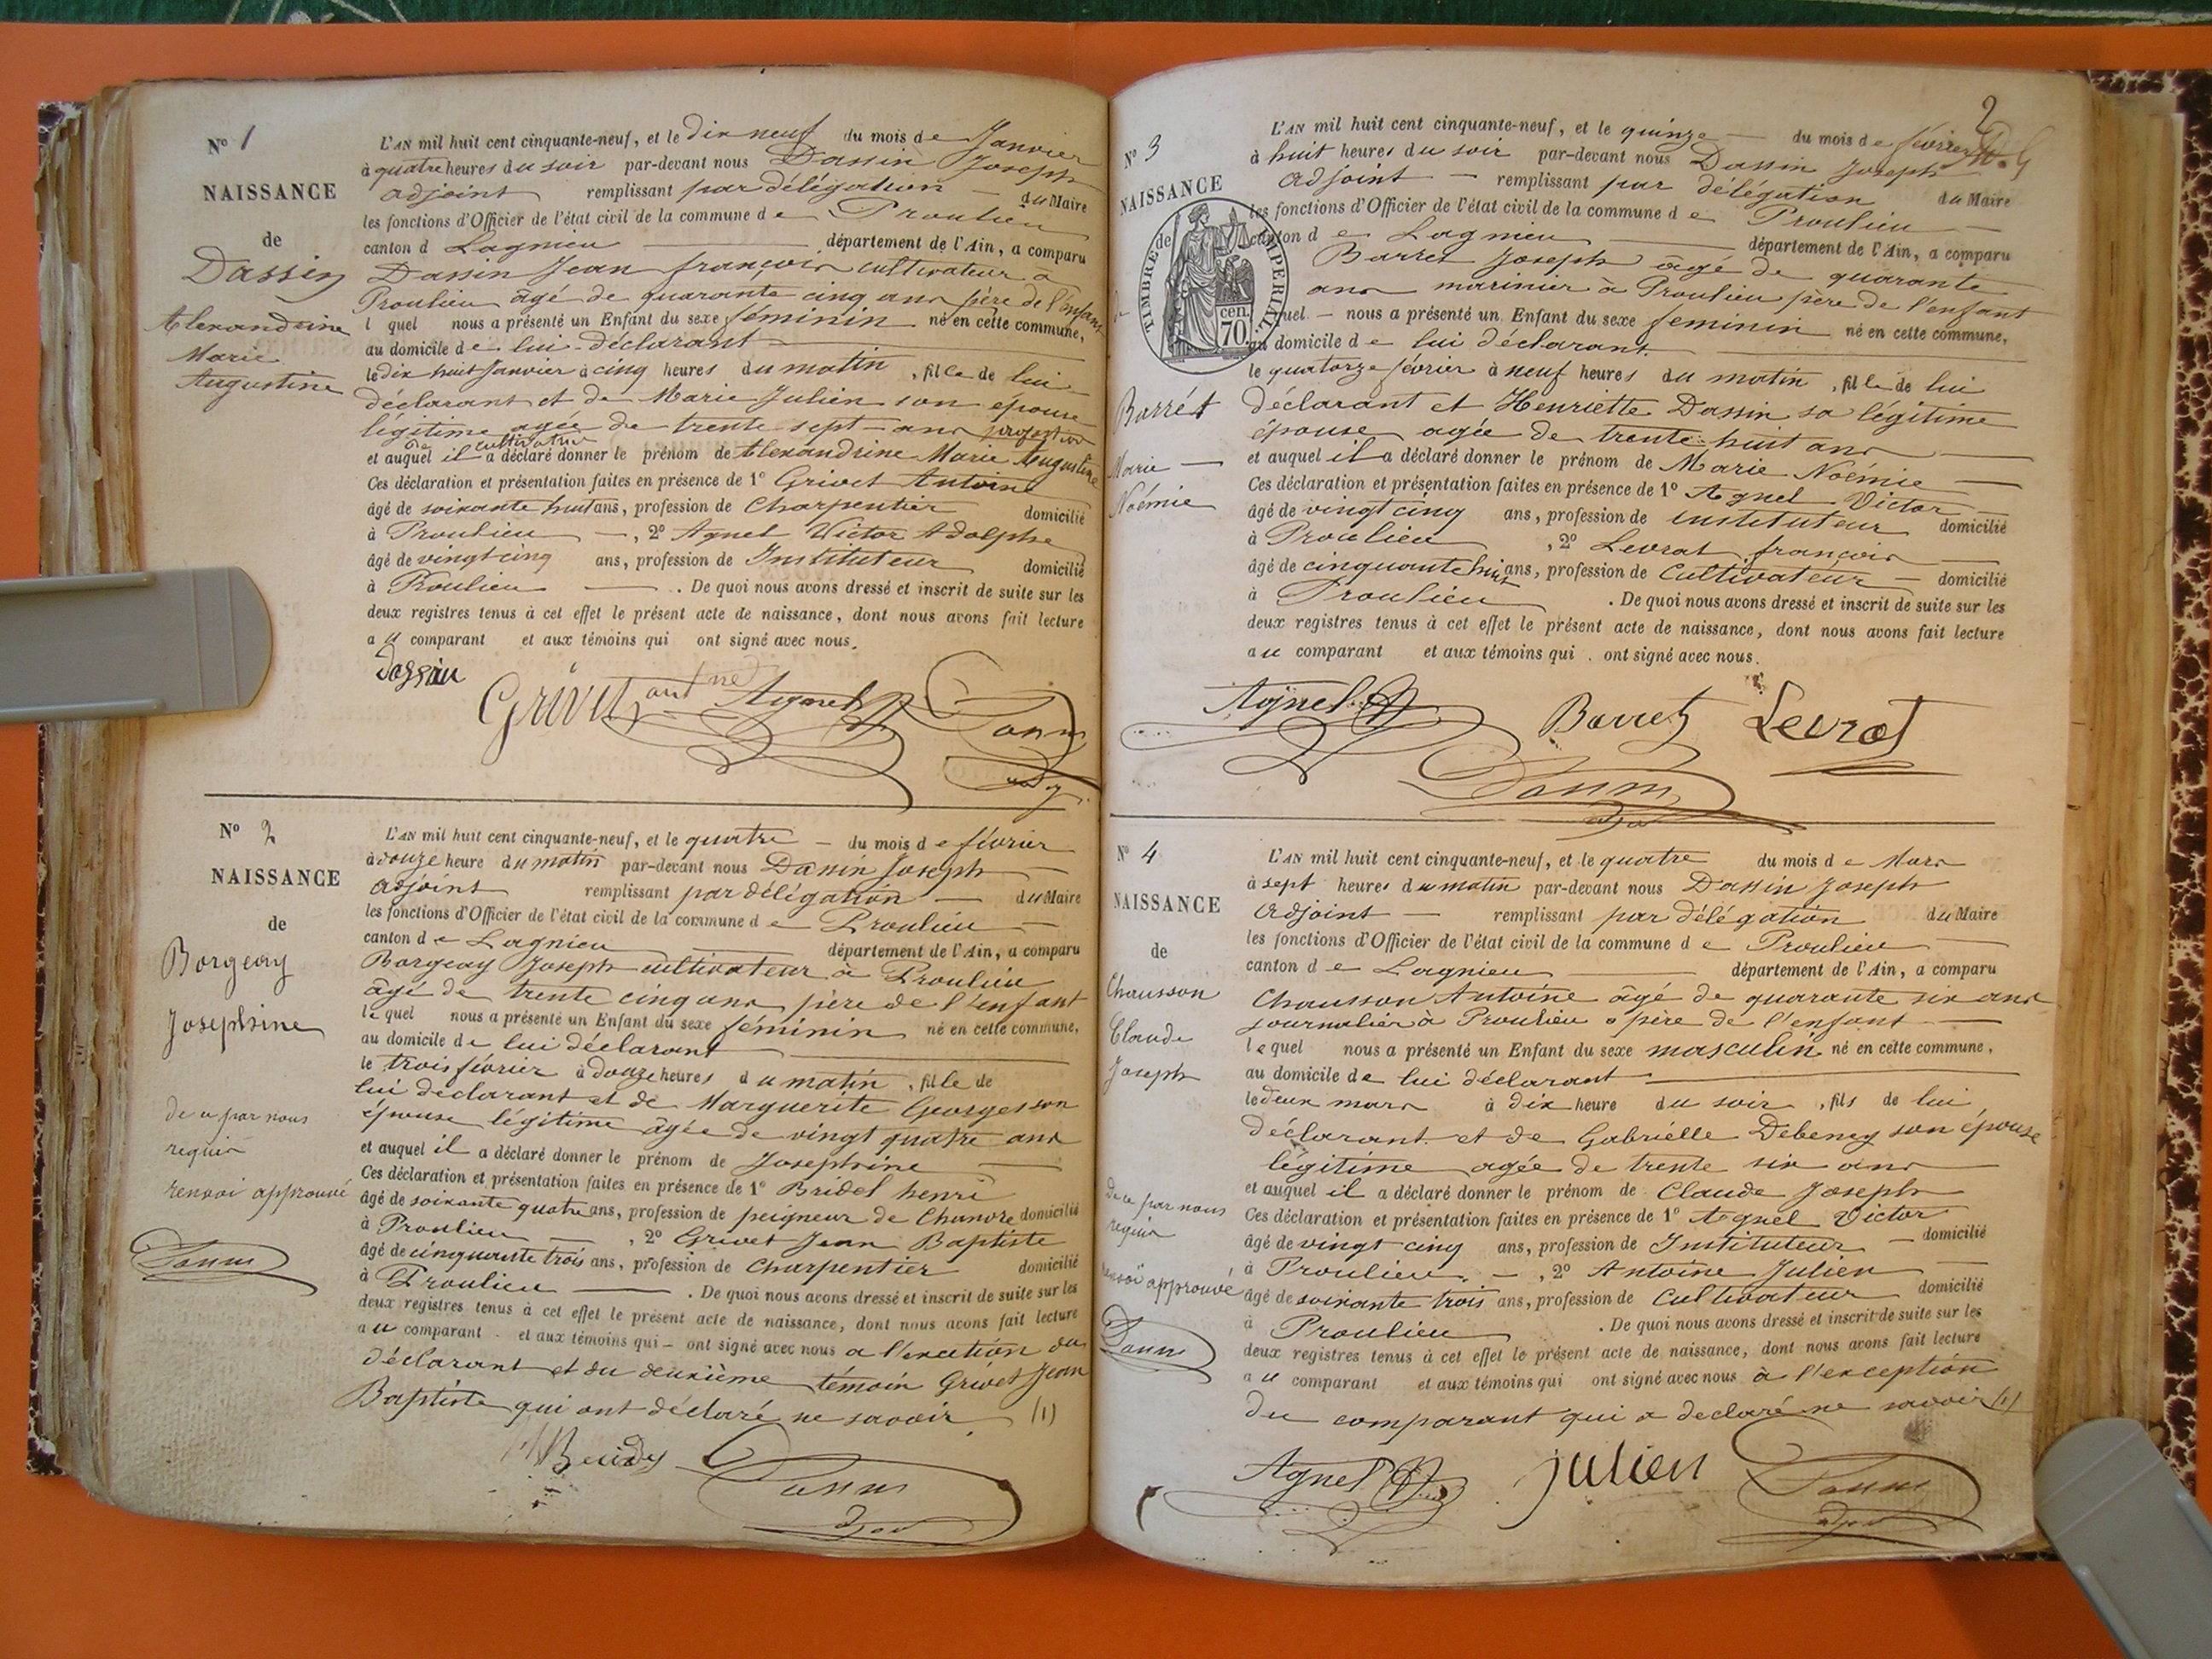 N° 1
NAISSANCE
de
Dassin
Alexandrine
Marie
Augustine
L'AN mil huit cent cinquante-neuf, et le dix neuf du mois de Janvier
à quatre heures du soir par-devant nous Dassin Joseph
adjoint remplissant par délégation du Maire
les fonctions d'Officier de l'état civil de la commune de Proulieu
canton d Lagnieu département de l'Ain, a comparu
Dassin Jean françois cultivateur à
Proulieu âgé de quarante cinq ans père de l'enfant
l quel nous a présenté un Enfant du sexe féminin né en cette commune,
au domicile de lui déclarant
le dix huit Janvier à cinq heures du matin, fille de lui
déclarant et de Marie Julien son épouse
légitime agée de trente sept ans profession
de cultivatrice
et auquel il a déclaré donner le prénom de Alexandrine Marie Augustine
Ces déclaration et présentation faites en présence de 1° Grivet Antoine
âgé de soixante huit ans, profession de Charpentier domicilié
à Proulieu , 2° Agnel Victor Adolphe
âgé de vingt cinq ans, profession de Instituteur domicilié
à Proulieu . De quoi nous avons dressé et inscrit de suite sur les
deux registres tenus à cet effet le présent acte de naissance, dont nous avons fait lecture
au comparant et aux témoins qui ont signé avec nous.
Dassin Grivet Agnel
N° 2
NAISSANCE
de
Borgeay
Josephine
de ce par nous
requis
renvoi approuvé
L'AN mil huit cent cinquante-neuf, et le quatre du mois de février
à douze heure du matin par-devant nous Dassin Joseph
adjoint remplissant par délégation du Maire
les fonctions d'Officier de l'état civil de la commune de Proulieu
canton de Lagnieu département de l'Ain, a comparu
Borgeay Joseph cultivateur à Proulieu
âgé de trente cinq ans père de l'enfant
lequel nous a présenté un Enfant du sexe féminin né en cette commune,
au domicile de lui déclarant
le trois février à douze heures du matin, fille de
lui déclarant et de Marguerite Georges son
épouse légitime âgée de vingt quatre ans
et auquel il a déclaré donner le prénom de Josephine
Ces déclaration et présentation faites en présence de 1° Bridel henri
âgé de soixante quatre ans, profession de peigneur de Chanvre domicilié
à Proulieu , 2° Grivet Jean Baptiste
âgé de cinquante trois ans, profession de Charpentier domicilié
à Proulieu . De quoi nous avons dressé et inscrit de suite sur les
deux registres tenus à cet effet le présent acte de naissance, dont nous avons fait lecture
au comparant et aux témoins qui ont signé avec nous a l'exeution du
déclarant et du deuxième témoin Grivet Jean
Baptiste qui ont déclaré ne savoir (1)
2
N° 3
NAISSANCE
de
TIMBRE IMPERIAL
70 cen.
Barret
Marie
Noémie
L'AN mil huit cent cinquante-neuf, et le quinze du mois de février
à huit heures du soir par-devant nous Dassin Joseph
adjoint remplissant par délégation du Maire
les fonctions d'Officier de l'état civil de la commune de Proulieu
canton de Lagnieu département de l'Ain, a comparu
Barret Joseph âgé de quarante
ans marinier à Proulieu père de l'enfant
quel nous a présenté un Enfant du sexe feminin né en cette commune,
au domicile de lui déclarant
le quatorze février à neuf heures du matin, fille de lui
déclarant et Henriette Dassin sa légitime
épouse agée de trente huit ans
et auquel il a déclaré donner le prénom de Marie Noémie
Ces déclaration et présentation faites en présence de 1° Agnel Victor
âgé de vingt cinq ans, profession de instituteur domicilié
à Proulieu , 2° Levrat françois
âgé de cinquante huit ans, profession de Cultivateur domicilié
à Proulieu . De quoi nous avons dressé et inscrit de suite sur les
deux registres tenus à cet effet le présent acte de naissance, dont nous avons fait lecture
au comparant et aux témoins qui ont signé avec nous.
Agnel Barret Levrat
N° 4
NAISSANCE
de
Chausson
Claude
Joseph
de ce par nous
requis
renvoi approuvé
L'AN mil huit cent cinquante-neuf, et le quatre du mois de Mars
à sept heures du matin par-devant nous Dassin Joseph
adjoint remplissant par délégation du Maire
les fonctions d'Officier de l'état civil de la commune de Proulieu
canton de Lagnieu département de l'Ain, a comparu
Chausson Antoine âgé de quarante six ans
journalier à Proulieu père de l'enfant
lequel nous a présenté un Enfant du sexe masculin né en cette commune,
au domicile de lui déclarant
le deux mars à dix heure du soir, fils de lui
déclarant et de Gabrielle Debeney son épouse
légitime agée de trente six ans
et auquel il a déclaré donner le prénom de Claude Joseph
Ces déclaration et présentation faites en présence de 1° Agnel Victor
âgé de vingt cinq ans, profession de Instituteur domicilié
à Proulieu , 2° Antoine Julien
âgé de soixante trois ans, profession de Cultivateur domicilié
à Proulieu . De quoi nous avons dressé et inscrit de suite sur les
deux registres tenus à cet effet le présent acte de naissance, dont nous avons fait lecture
au comparant et aux témoins qui ont signé avec nous à l'exception
du comparant qui a declaré ne savoir (1)
Agnel julien